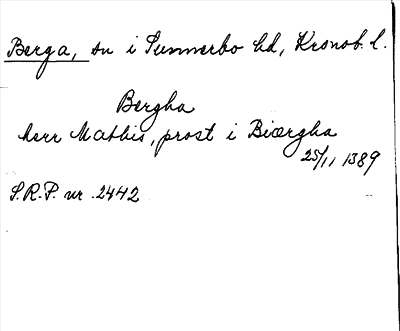 Berga, sn i Sunnerbo hd, Kronob. l.
Bergha
herr Mathis, prost i Biærgha
25/11 1389
S.R.P. nr. 2442